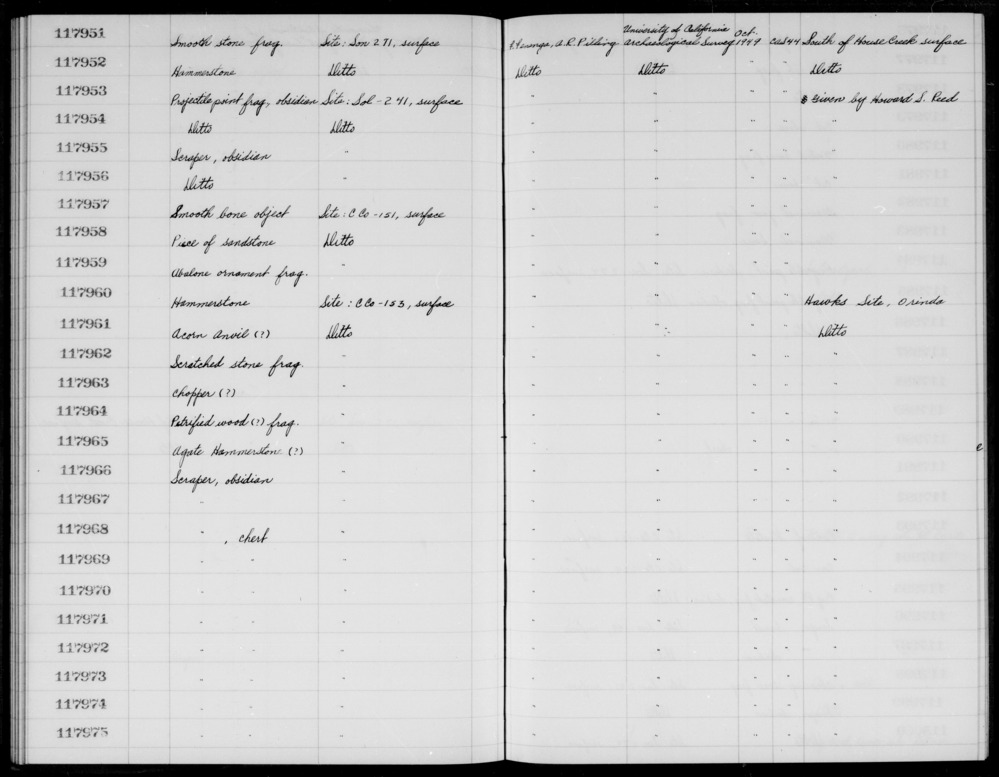 117951 Smooth stone frag. Site: Son 271, surface A.R. Pilling University of California Archaeological Survey Oct. 1949 cas 44 South of House Creek surface
117952 Hammerstone Ditto Ditto Ditto " " Ditto
117953 Projectile point frag, obsidian Site: Sol-241, surface " " " " Given by Howard S. Reed
117954 Ditto Ditto " " " " "
117955 Scraper, obsidian " " " " " "
117956 Ditto " " " " " "
117957 Smooth bone object Site: C Co-151, surface " " " " "
117958 Piece of sandstone Ditto " " " " "
117959 Abalone ornament frag. " " " " " "
117960 Hammerstone Site: C Co-153, surface " " " " Hawks Site, Orinda
117961 Acorn Anvil (?) Ditto " " " " Ditto
117962 Scratched stone frag. " " " " " "
117963 Chopper (?) " " " " " "
117964 Petrified wood (?) frag. " " " " " "
117965 Agate Hammerstone (?) " " " " " "
117966 Scraper, obsidian " " " " " "
117967 " " " " " " " "
117968 " , chert " " " " " "
117969 " " " " " " " "
117970 " " " " " " " "
117971 " " " " " " " "
117972 " " " " " " " "
117973 " " " " " " " "
117974 " " " " " " " "
117975 " " " " " " " "